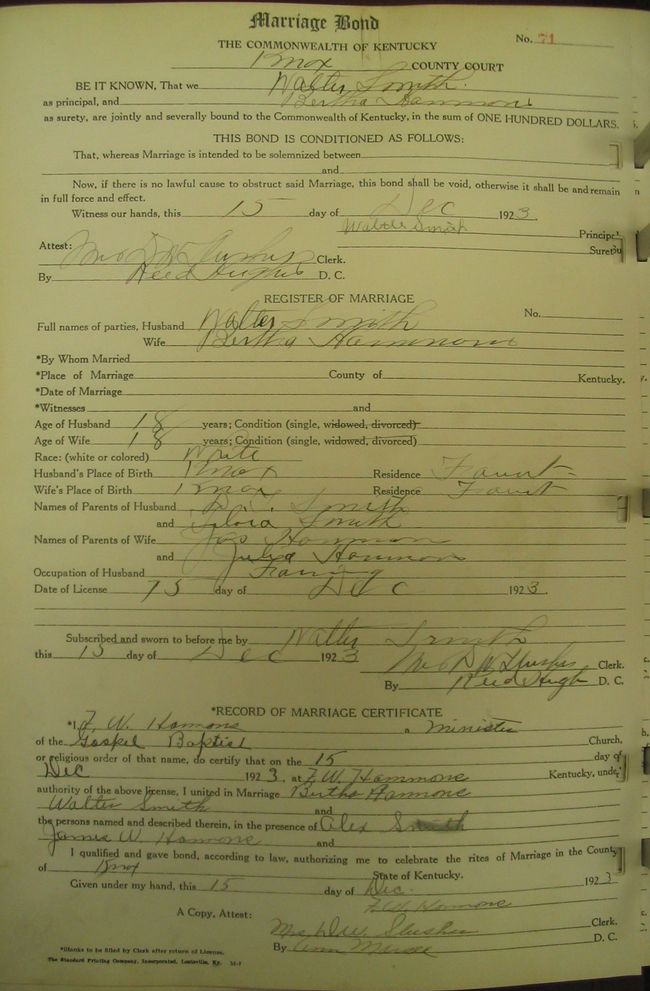 Marriage Bond
No. 71
THE COMMONWEALTH OF KENTUCKY
Knox COUNTY COURT
BE IT KNOWN, That we Walter Smith
as principal, and Bertha Hammons
as surety, are jointly and severally bound to the Commonwealth of Kentucky, in the sum of ONE HUNDRED DOLLARS.
THIS BOND IS CONDITIONED AS FOLLOWS:
That, whereas Marriage is intended to be solemnized between
and
Now, if there is no lawful cause to obstruct said Marriage, this bond shall be void, otherwise it shall be and remain
in full force and effect.
Witness our hands, this 15 day of Dec 1923.
Walter Smith Principal
Surety
Attest: Clerk.
By Reed Hughes D. C.
REGISTER OF MARRIAGE
Full names of parties, Husband Walter Smith No.
Wife Bertha Hammons
*By Whom Married
*Place of Marriage County of Kentucky.
*Date of Marriage
*Witnesses and
Age of Husband 18 years; Condition (single, widowed, divorced)
Age of Wife 18 years; Condition (single, widowed, divorced)
Race: (white or colored) White
Husband's Place of Birth Knox Residence
Wife's Place of Birth Knox Residence
Names of Parents of Husband Smith
and Smith
Names of Parents of Wife Hammon
and Julia Hammons
Occupation of Husband Faming
Date of License 15 day of Dec 1923.
Subscribed and sworn to before me by Walter Smith
this 15 day of Dec 1923
Clerk.
By Reed Hugh D. C.
*RECORD OF MARRIAGE CERTIFICATE
*I, F. W. Hamons a Minister
of the Gospel Baptist Church,
or religious order of that name, do certify that on the 15 day of
Dec 1923, at F. W. Hammons Kentucky, under
authority of the above license, I united in Marriage Bertha Hamons
Walter Smith and
the persons named and described therein, in the presence of Alex Smith
James W. Hamons and
I qualified and gave bond, according to law, authorizing me to celebrate the rites of Marriage in the County
of Knox State of Kentucky.
Given under my hand, this 15 day of Dec. 1923
F. W. Hamons
A Copy, Attest: Mrs. D. W. Slusher Clerk.
By D. C.
*Blanks to be filled by Clerk after return of License.
The Standard Printing Company, Incorporated, Louisville, Ky.